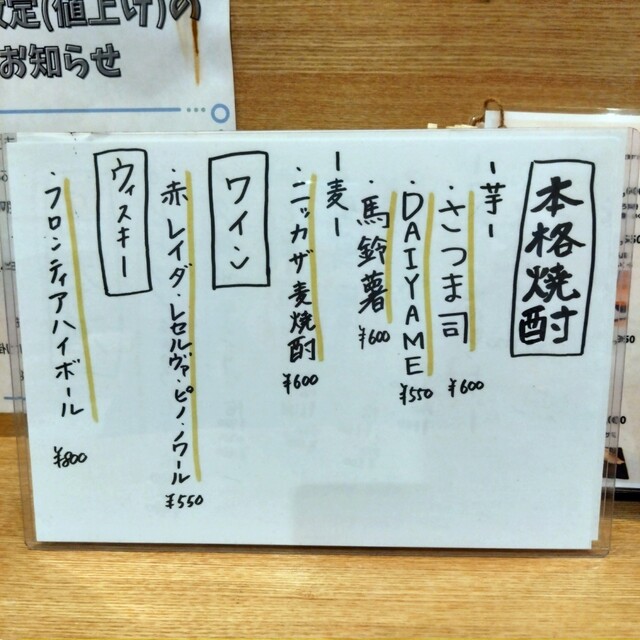 改定(値上げ)の
お知らせ
本格焼酎
ー芋ー
・さつま司 ¥600
・DAIYAME ¥550
・馬鈴薯 ¥600
ー麦ー
・ニッカザ麦焼酎 ¥600
ワイン
・赤 レイダ・レセルヴァ・ピノ・ノワール ¥550
ウィスキー
・フロンティアハイボール ¥800